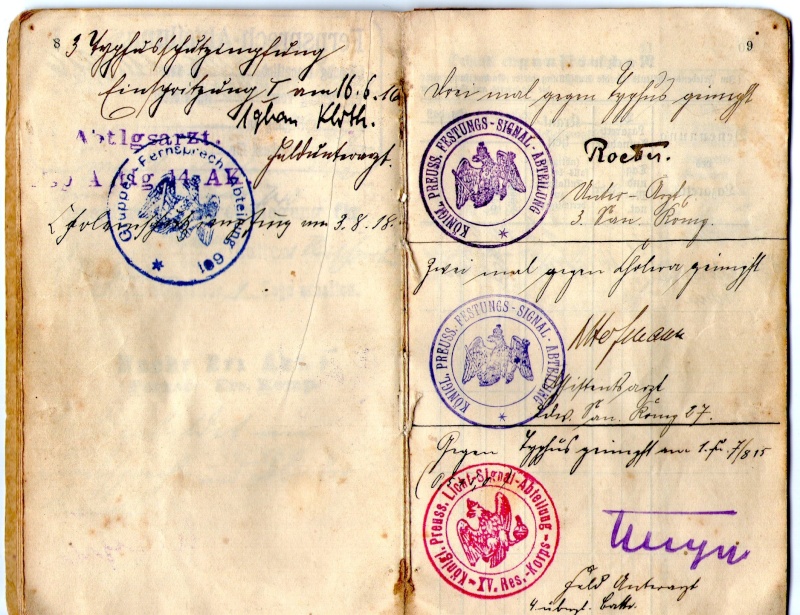 8
3 Typhusschutzimpfung
Einspritzung I am 16.6.16
Abtlgsarzt.
Feldunterarzt.
Gruppen-Fernsprech-Abteilung 601
Choleraschutzimpfung am 3.8.18.
9
Drei mal gegen Typhus geimpft
KÖNIGL. PREUSS. FESTUNGS-SIGNAL-ABTEILUNG
Unter-Arzt
3. San. Komp.
Zwei mal gegen Cholera geimpft
KÖNIGL. PREUSS. FESTUNGS-SIGNAL-ABTEILUNG
Assistenzarzt
Ldw. San. Komp 27.
Gegen Typhus geimpft am 1. u. 7/8 15
Königl. Preuss. Licht-Signal-Abteilung
XV. Res.-Korps
Feld Unterarzt